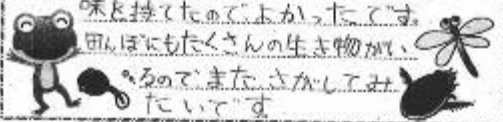 味を持てたので、よかったです。
田んぼにもたくさんの生き物がい
るので、また、さがしてみ
たいです